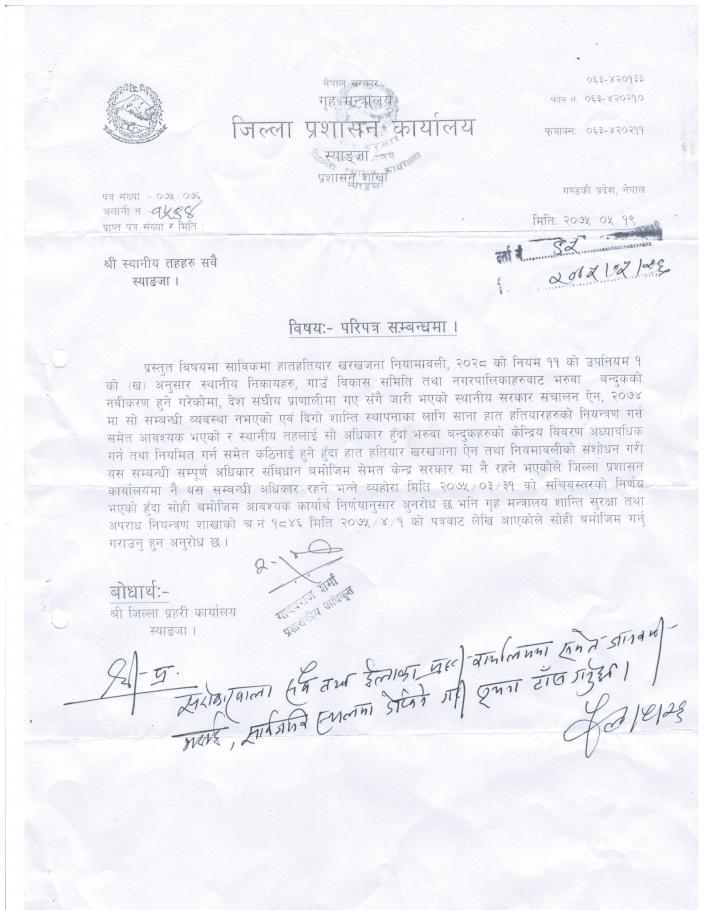 नेपाल सरकार
गृह मन्त्रालय
जिल्ला प्रशासन कार्यालय
स्याङ्जा
प्रशासन शाखा
०६३-४२०१३३
फोन नं. ०६३-४२०२१०
फ्याक्सः ०६३-४२०२११
गण्डकी प्रदेश, नेपाल
पत्र संख्या :- ०७५/०७६
चलानी नं :-
प्राप्त पत्र संख्या र मिति :
मितिः २०७५/०५/१९
दर्ता नं.
श्री स्थानीय तहहरु सवै
स्याङजा ।
विषयः- परिपत्र सम्बन्धमा ।
प्रस्तुत विषयमा साविकमा हातहतियार खरखजना नियामावली, २०२८ को नियम ११ को उपनियम १
को (ख) अनुसार स्थानीय निकायहरु, गाउँ विकास समिति तथा नगरपालिकाहरुवाट भरुवा बन्दुकको
नवीकरण हुने गरेकोमा, देश संघीय प्राणालीमा गए संगै जारी भएको स्थानीय सरकार संचालन ऐन, २०७४
मा सो सम्वन्धी व्यवस्था नभएको एवं दिगो शान्ति स्थापनाका लागि साना हात हतियारहरुको नियन्त्रण गर्न
समेत आवश्यक भएको र स्थानीय तहलाई सो अधिकार हुँदा भरुवा बन्दुकहरुको केन्द्रिय बिबरण अध्यावधिक
गर्न तथा नियमित गर्न समेत कठिनाई हुने हुँदा हात हतियार खरखजाना ऐन तथा नियमावलीको संशोधन गरी
यस सम्बन्धी सम्पूर्ण अधिकार संविधान बमोजिम सेमत केन्द्र सरकार मा नै रहने भएकोले जिल्ला प्रशासन
कार्यालयमा नै यस सम्बन्धी अधिकार रहने भन्ने व्यहोरा मिति २०७५/०३/३१ को सचिवस्तरको निर्णय
भएको हुँदा सोही बमोजिम आवश्यक कार्यार्थ निर्णयानुसार अुनरोध छ भनि गृह मन्त्रालय शान्ति सुरक्षा तथा
अपराध नियन्त्रण शाखाको च.नं १८४६ मिति २०७५/४/१ को पत्रवाट लेखि आएकोले सोही बमोजिम गर्नु
गराउनु हुन अनुरोध छ ।
यादवराज शर्मा
प्रशासकीय अधिकृत
बोधार्थः-
श्री जिल्ला प्रहरी कार्यालय
स्याङजा ।